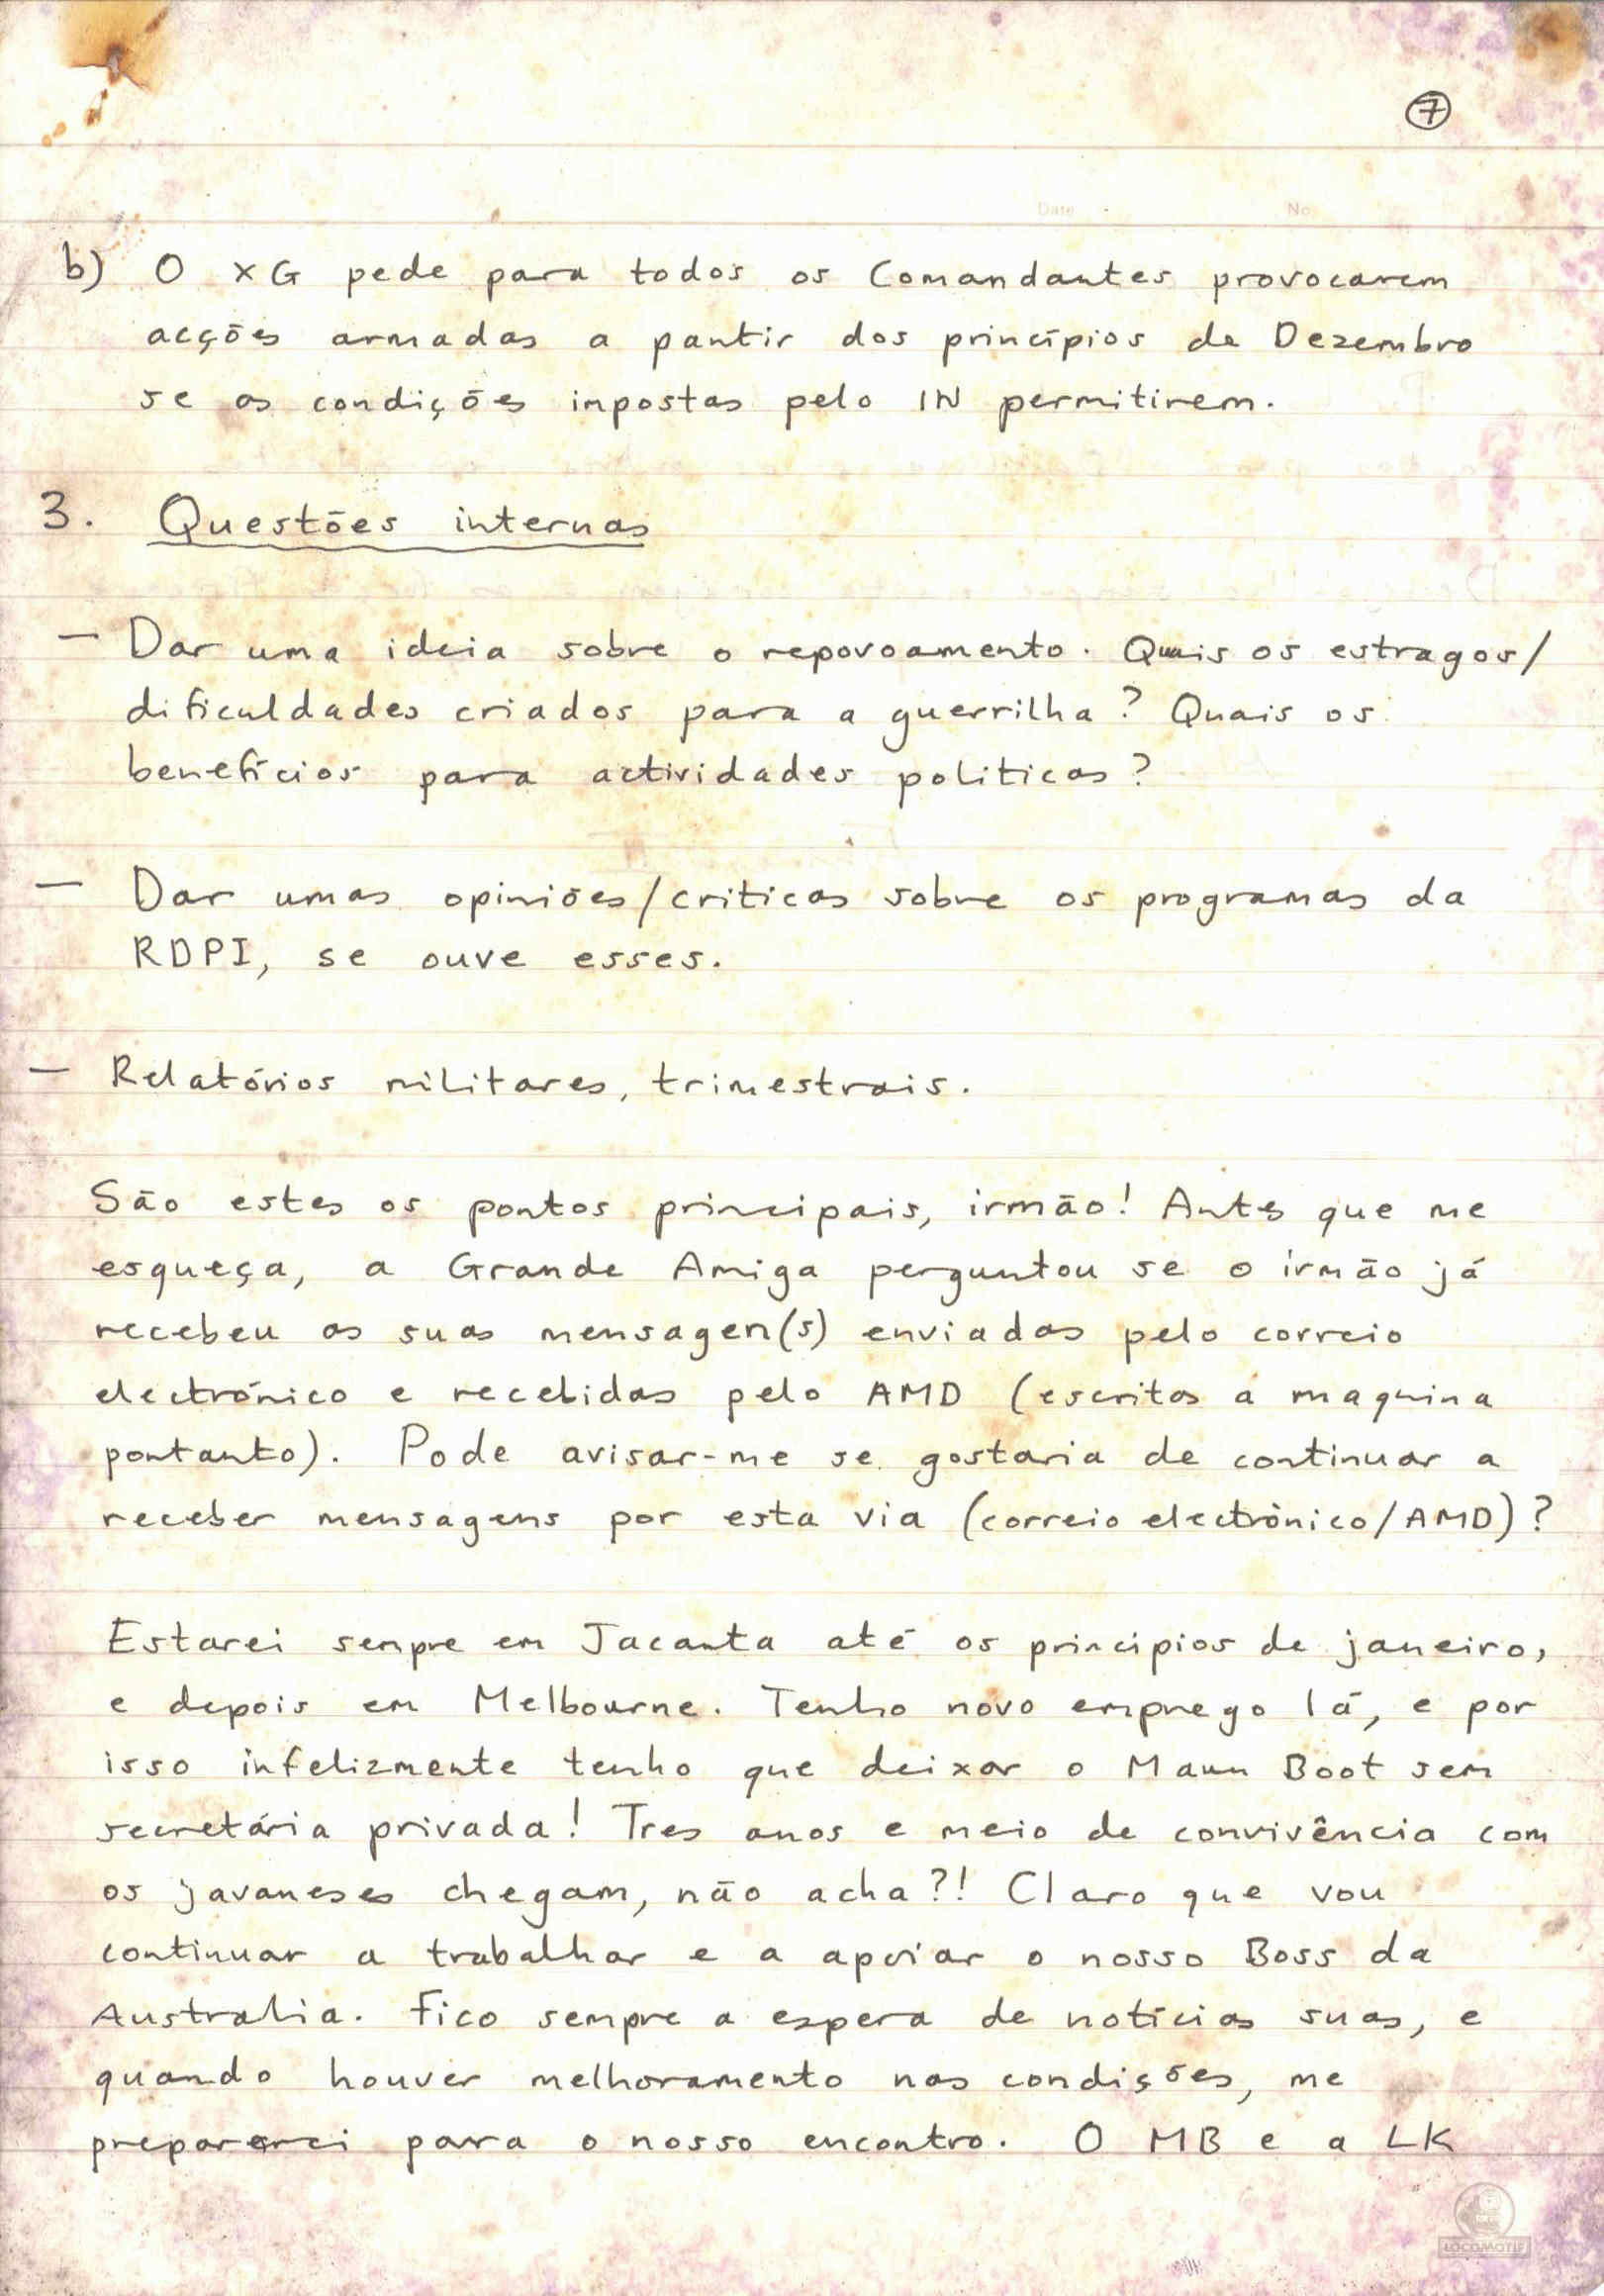 7
Date No
b) O XG pede para todos os Comandantes provocarem
acções armadas a partir dos princípios de Dezembro
se as condições impostas pelo IN permitirem.
3. Questões internas
— Dar uma ideia sobre o repovoamento. Quais os estragos/
dificuldades criados para a guerrilha? Quais os
benefícios para actividades politicas?
— Dar umas opiniões/criticas sobre os programas da
RDPI, se ouve esses.
— Relatórios militares, trimestrais.
São estes os pontos principais, irmão! Antes que me
esqueça, a Grande Amiga perguntou se o irmão já
recebeu as suas mensagen(s) enviadas pelo correio
electrónico e recebidas pelo AMD (escritas á maquina
portanto). Pode avisar-me se gostaria de continuar a
receber mensagens por esta via (correio electrónico/AMD)?
Estarei sempre em Jacarta até os principios de janeiro,
e depois em Melbourne. Tenho novo emprego lá, e por
isso infelizmente tenho que deixar o Maun Boot sem
secretária privada! Tres anos e meio de convivência com
os javaneses chegam, não acha?! Claro que vou
continuar a trabalhar e a apoiar o nosso Boss da
Australia. Fico sempre a espera de notícias suas, e
quando houver melhoramento nas condições, me
prepararei para o nosso encontro. O MB e a LK
LOCOMOTIF